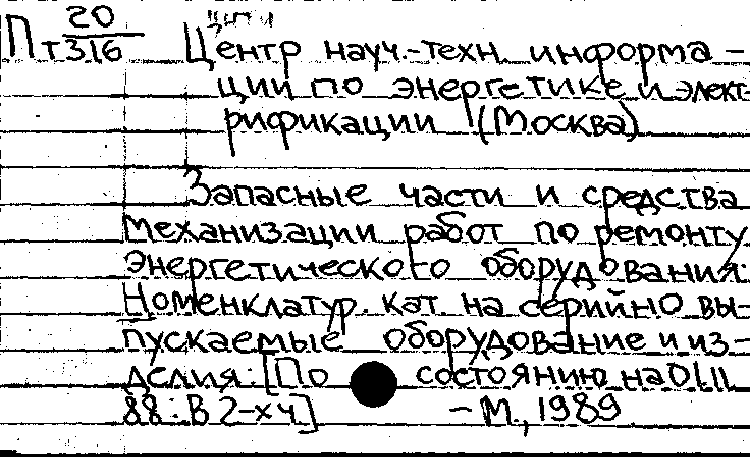 П 20
т316
Центр науч.-техн. информа-
ции по энергетике и элект-
рификации (Москва)
Запасные части и средства
механизации работ по ремонту
энергетического оборудования:
Номенклатур. кат. на серийно вы-
пускаемые оборудование и из-
делия: [По состоянию на 01.11
88: В 2-х ч.] - М., 1989